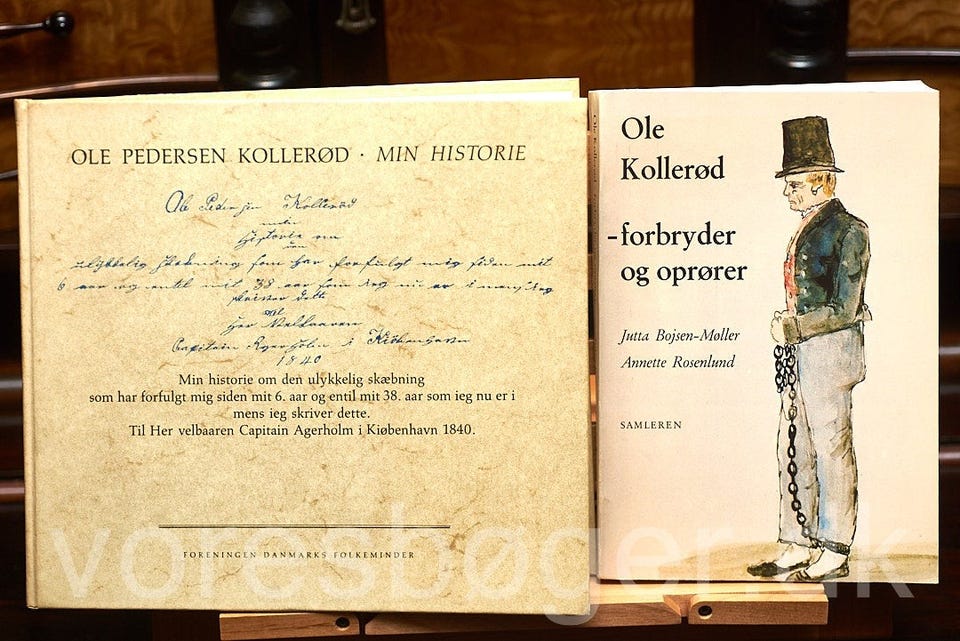 OLE PEDERSEN KOLLERØD · MIN HISTORIE
Ole Pedersen Kollerød
min
Historie om
den
ulykkelig skæbning som har forfulgt mig siden mit
6 aar og entil mit 38 aar som ieg nu er i mens ieg
skriver dette
til
Her Velbaaren
Capitain Agerholm i Kiøbenhavn
1840
Min historie om den ulykkelig skæbning
som har forfulgt mig siden mit 6. aar og entil mit 38. aar som ieg nu er i
mens ieg skriver dette.
Til Her velbaaren Capitain Agerholm i Kiøbenhavn 1840.
FORENINGEN DANMARKS FOLKEMINDER
Ole
Kollerød
-forbryder
og oprører
Jutta Bojsen-Møller
Annette Rosenlund
SAMLEREN
Ole
voresbøger.dk